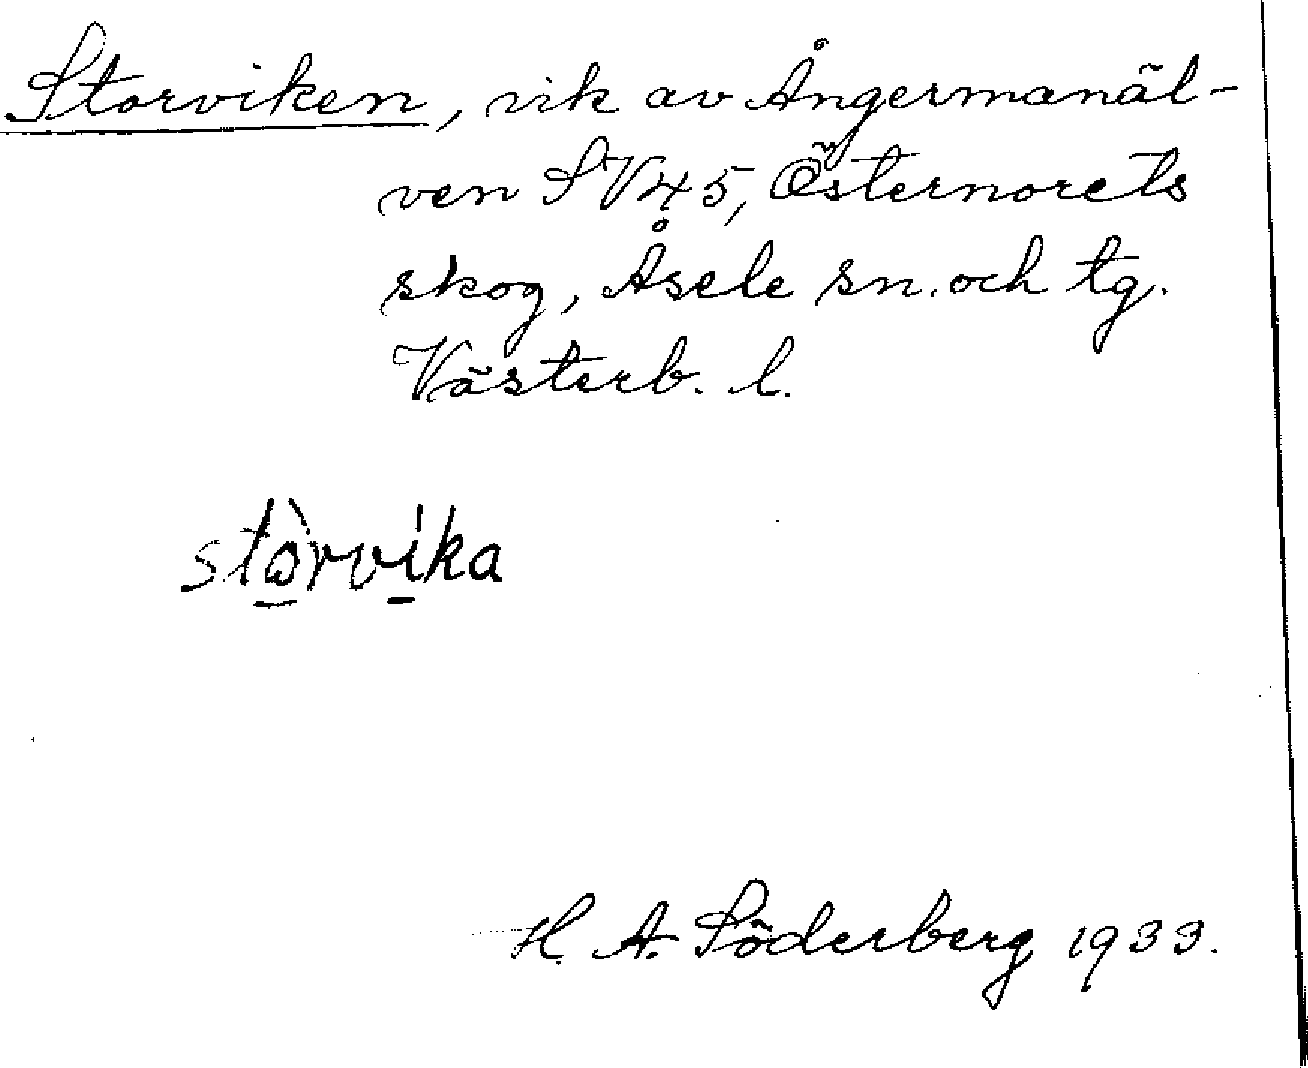 Storviken, vik av Ångermanäl-
ven SV45, Östernorets
skog, Åsele sn. och tg.
Västerb. l.
stòrvíka
H. A. Söderberg 1933.